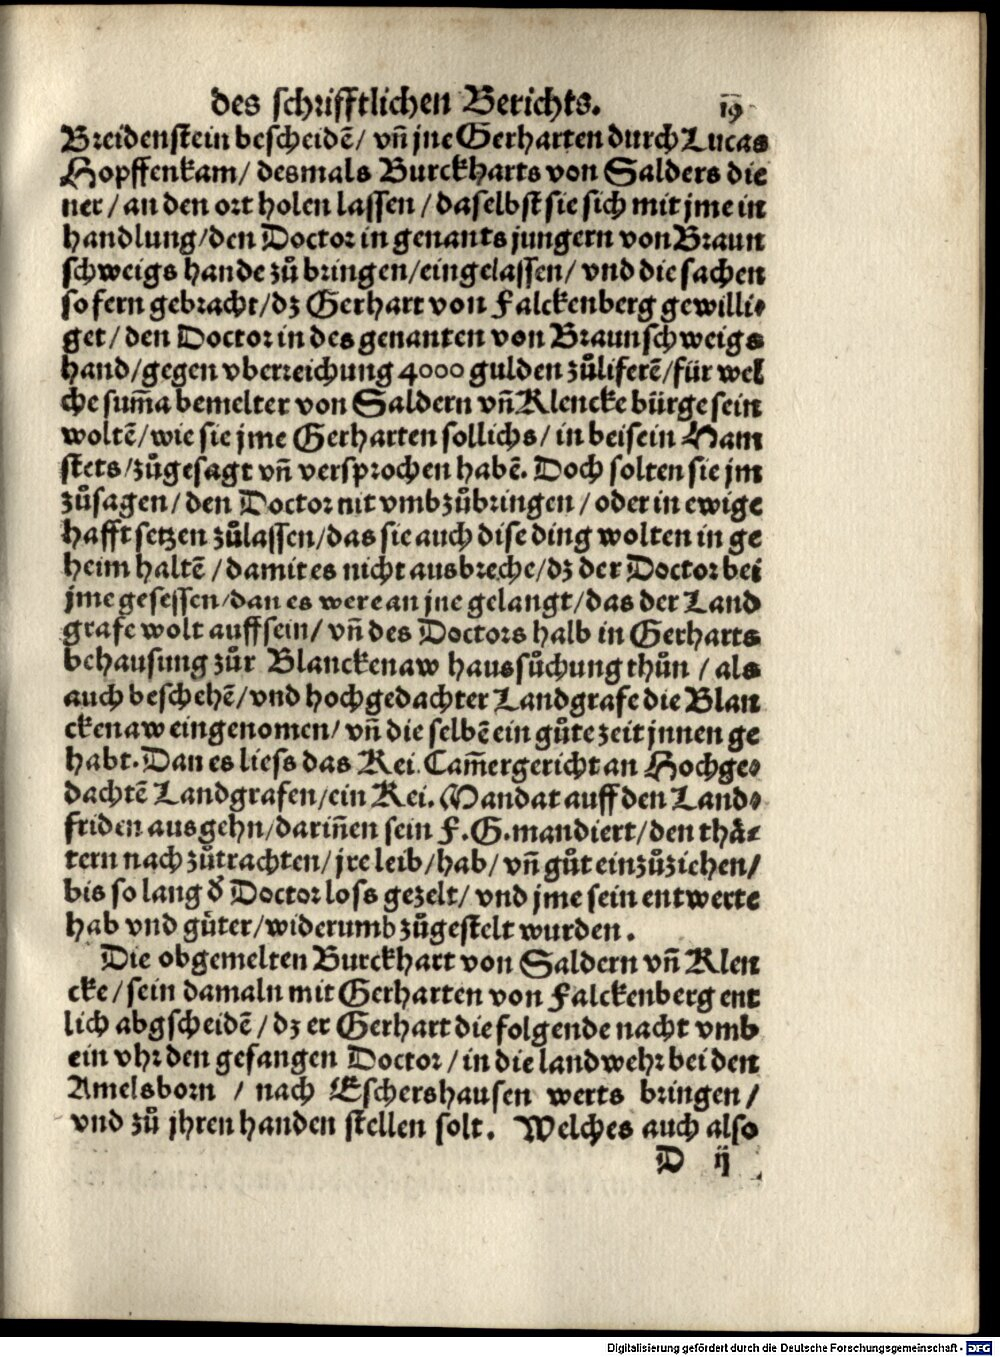 des schrifftlichen Berichts. 19
Breidenstein bescheidē/ vn̄ jne Gerharten durch Lucas
Hopffenkam/ desmals Burckharts von Salders die
ner/ an den ort holen lassen/ daselbst sie sich mit jme in
handlung/ den Doctor in genants jungern von Braun
schweigs hande zů bringen/ eingelassen/ vnd die sachen
so fern gebracht/ dz Gerhart von Falckenberg gewilli⸗
get/ den Doctor in des genanten von Braunschweigs
hand/ gegen vberreichung 4000 gulden zůliferē/ für wel
che sum̄a bemelter von Saldern vn̄ Klencke bürge sein
woltē/ wie sie jme Gerharten sollichs/ in beisein Ham
stets/ zůgesagt vn̄ versprochen habē. Doch solten sie jm
zůsagen/ den Doctor nit vmbzůbringen/ oder in ewige
hafft setzen zůlassen/ das sie auch dise ding wolten in ge
heim haltē/ damit es nicht ausbreche/ dz der Doctor bei
jme gesessen/ dan es were an jne gelangt/ das der Land
grafe wolt auff sein/ vn̄ des Doctors halb in Gerharts
behausung zůr Blanckenaw haussůchung thůn/ als
auch beschehē/ vnd hochgedachter Landgrafe die Blan
ckenaw eingenomen/ vn̄ die selbē ein gůte zeit jnnen ge
habt. Dan es liess das Kei. Cam̄ergericht an Hochge⸗
dachtē Landgrafen/ ein Kei. Mandat auff den Land⸗
friden ausgehn/ darin̄en sein F. G. mandiert/ den thä⸗
tern nach zůtrachten/ jre leib/ hab/ vn̄ gůt einzůziehen/
bis so lang d̕ Doctor loss gezelt/ vnd jme sein entwerte
hab vnd güter/ widerumb zůgestelt wurden.
Die obgemelten Burckhart von Saldern vn̄ Klen
cke/ sein damaln mit Gerharten von Falckenberg ent
lich abgscheidē/ dz er Gerhart die folgende nacht vmb
ein vhr den gefangen Doctor/ in die landwehr bei den
Amelsborn/ nach Eschershausen werts bringen/
vnd zů jhren handen stellen solt. Welches auch also
D ij
Digitalisierung gefördert durch die Deutsche Forschungsgemeinschaft - DFG